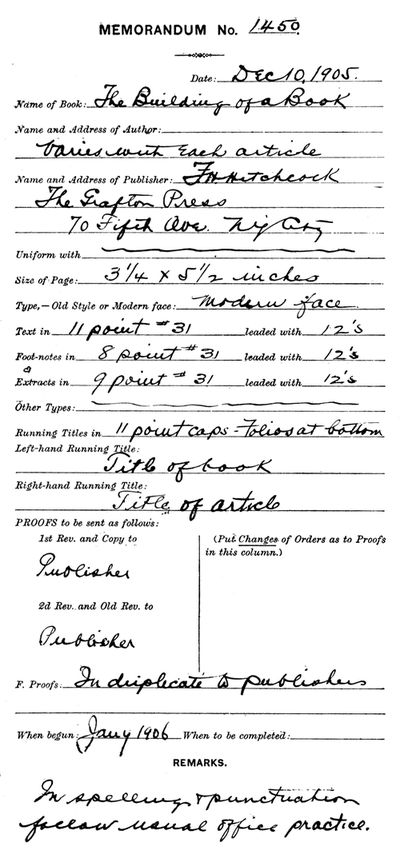 MEMORANDUM No. 1450.
Date: Dec 10, 1905.
Name of Book: The Building of a Book
Name and Address of Author:
Varies with each article
Name and Address of Publisher: F H Hitchcock
The Grafton Press
70 Fifth Ave. N.Y. City
Uniform with
Size of Page: 3 1/4 x 5 1/2 inches
Type,—Old Style or Modern face: Modern face
Text in 11 point #31 leaded with 12's
Foot-notes in 8 point #31 leaded with 12's
Extracts in 9 point #31 leaded with 12's
Other Types:
Running Titles in 11 point caps - Folios at bottom
Left-hand Running Title:
Title of book
Right-hand Running Title:
Title of article
PROOFS to be sent as follows:
1st Rev. and Copy to
Publisher
2d Rev. and Old Rev. to
Publisher
(Put Changes of Orders as to Proofs
in this column.)
F. Proofs: In duplicate to publishers
When begun: Jany 1906 When to be completed:
REMARKS.
In spelling & punctuation
follow usual office practice.